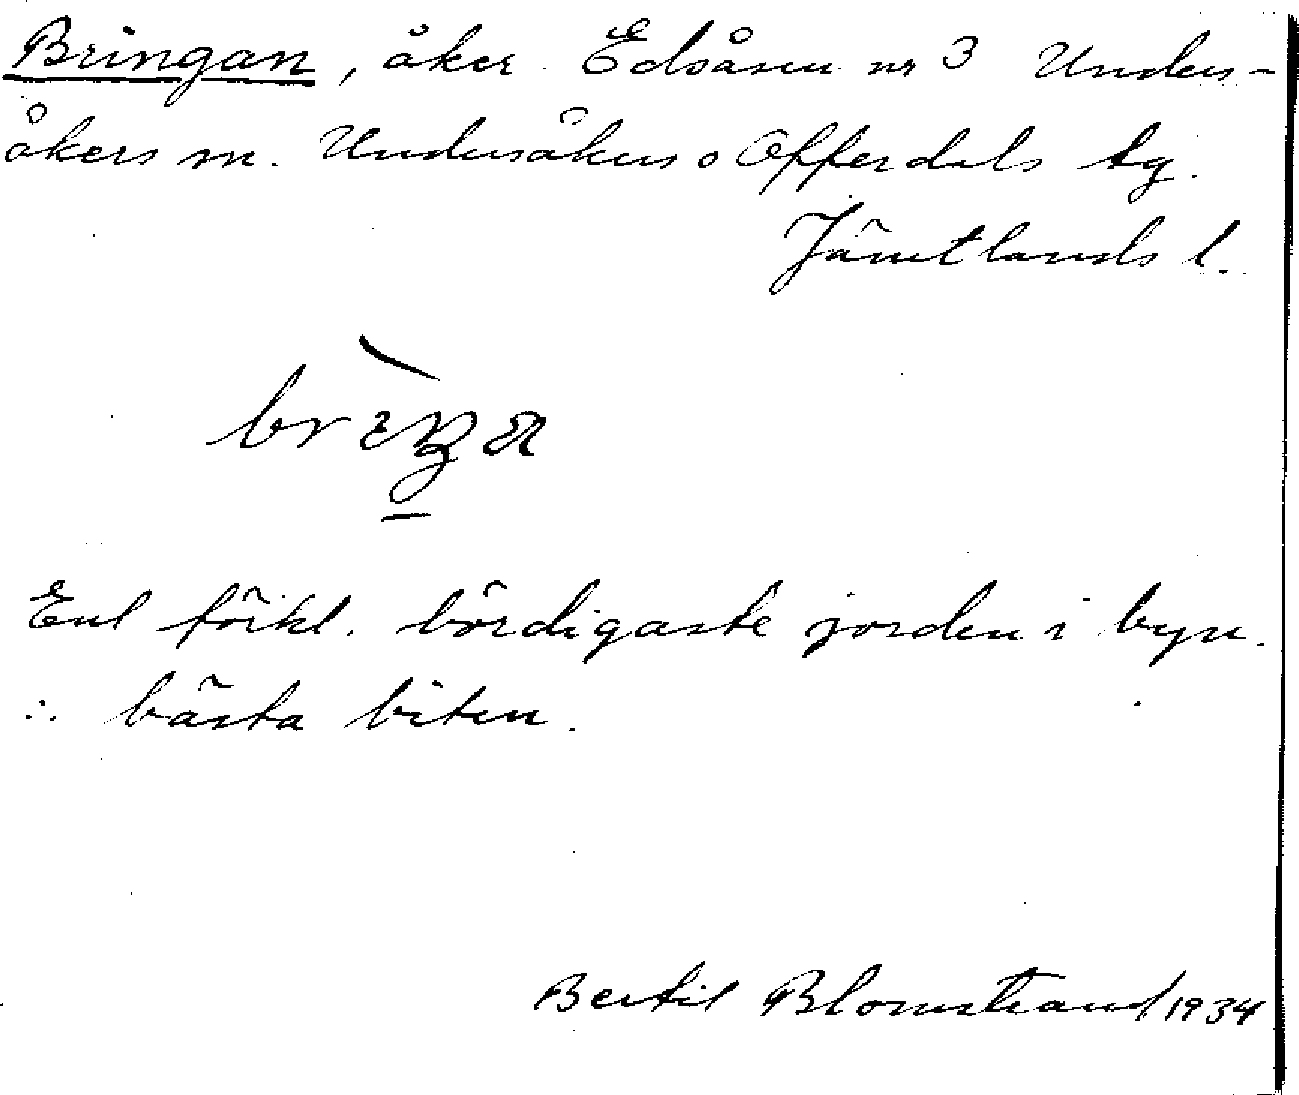 Bringan, åker Edsåsen nr 3 Unders-
åkers sn. Undersåkers o Offerdals tg.
Jämtlands l.
Enl förkl. bördigaste jorden i byn.
∴ bästa biten.
Bertil Blomstrand 1934